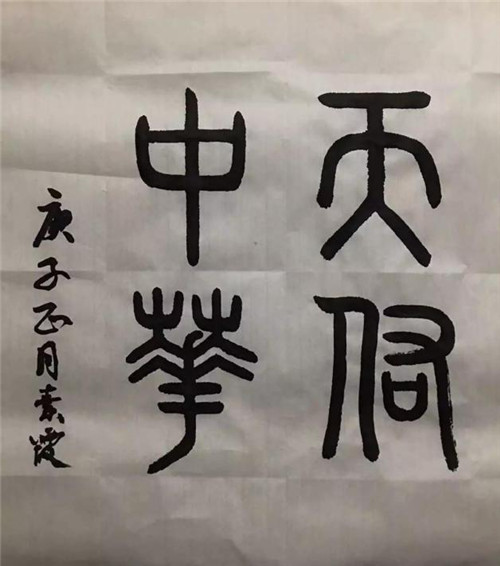 天佑
中華
庚子正月素霞